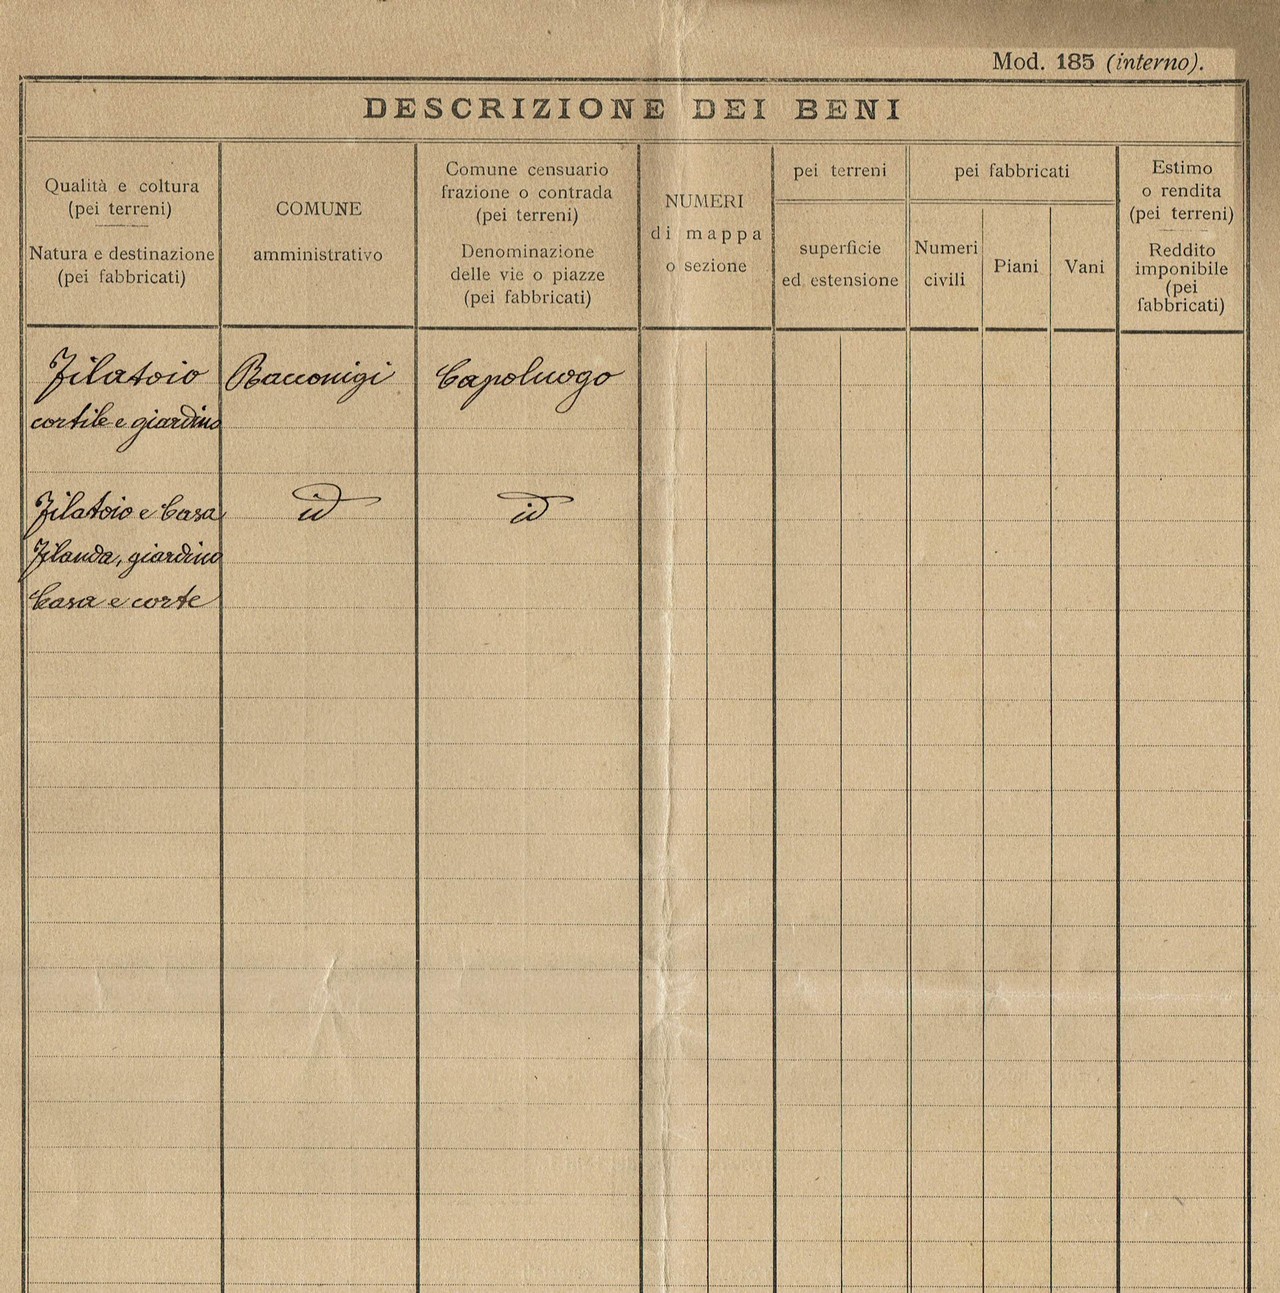 Mod. 185 (interno).
DESCRIZIONE DEI BENI
Qualità e coltura
(pei terreni)
Natura e destinazione
(pei fabbricati)
COMUNE
amministrativo
Comune censuario
frazione o contrada
(pei terreni)
Denominazione
delle vie o piazze
(pei fabbricati)
NUMERI
di mappa
o sezione
pei terreni
superficie
ed estensione
pei fabbricati
Numeri
civili
Piani
Vani
Estimo
o rendita
(pei terreni)
Reddito
imponibile
(pei
fabbricati)
Filatoio Racconigi Capoluogo
cortile e giardino
Filatoio e Casa id id
Filanda, giardino
Casa e corte